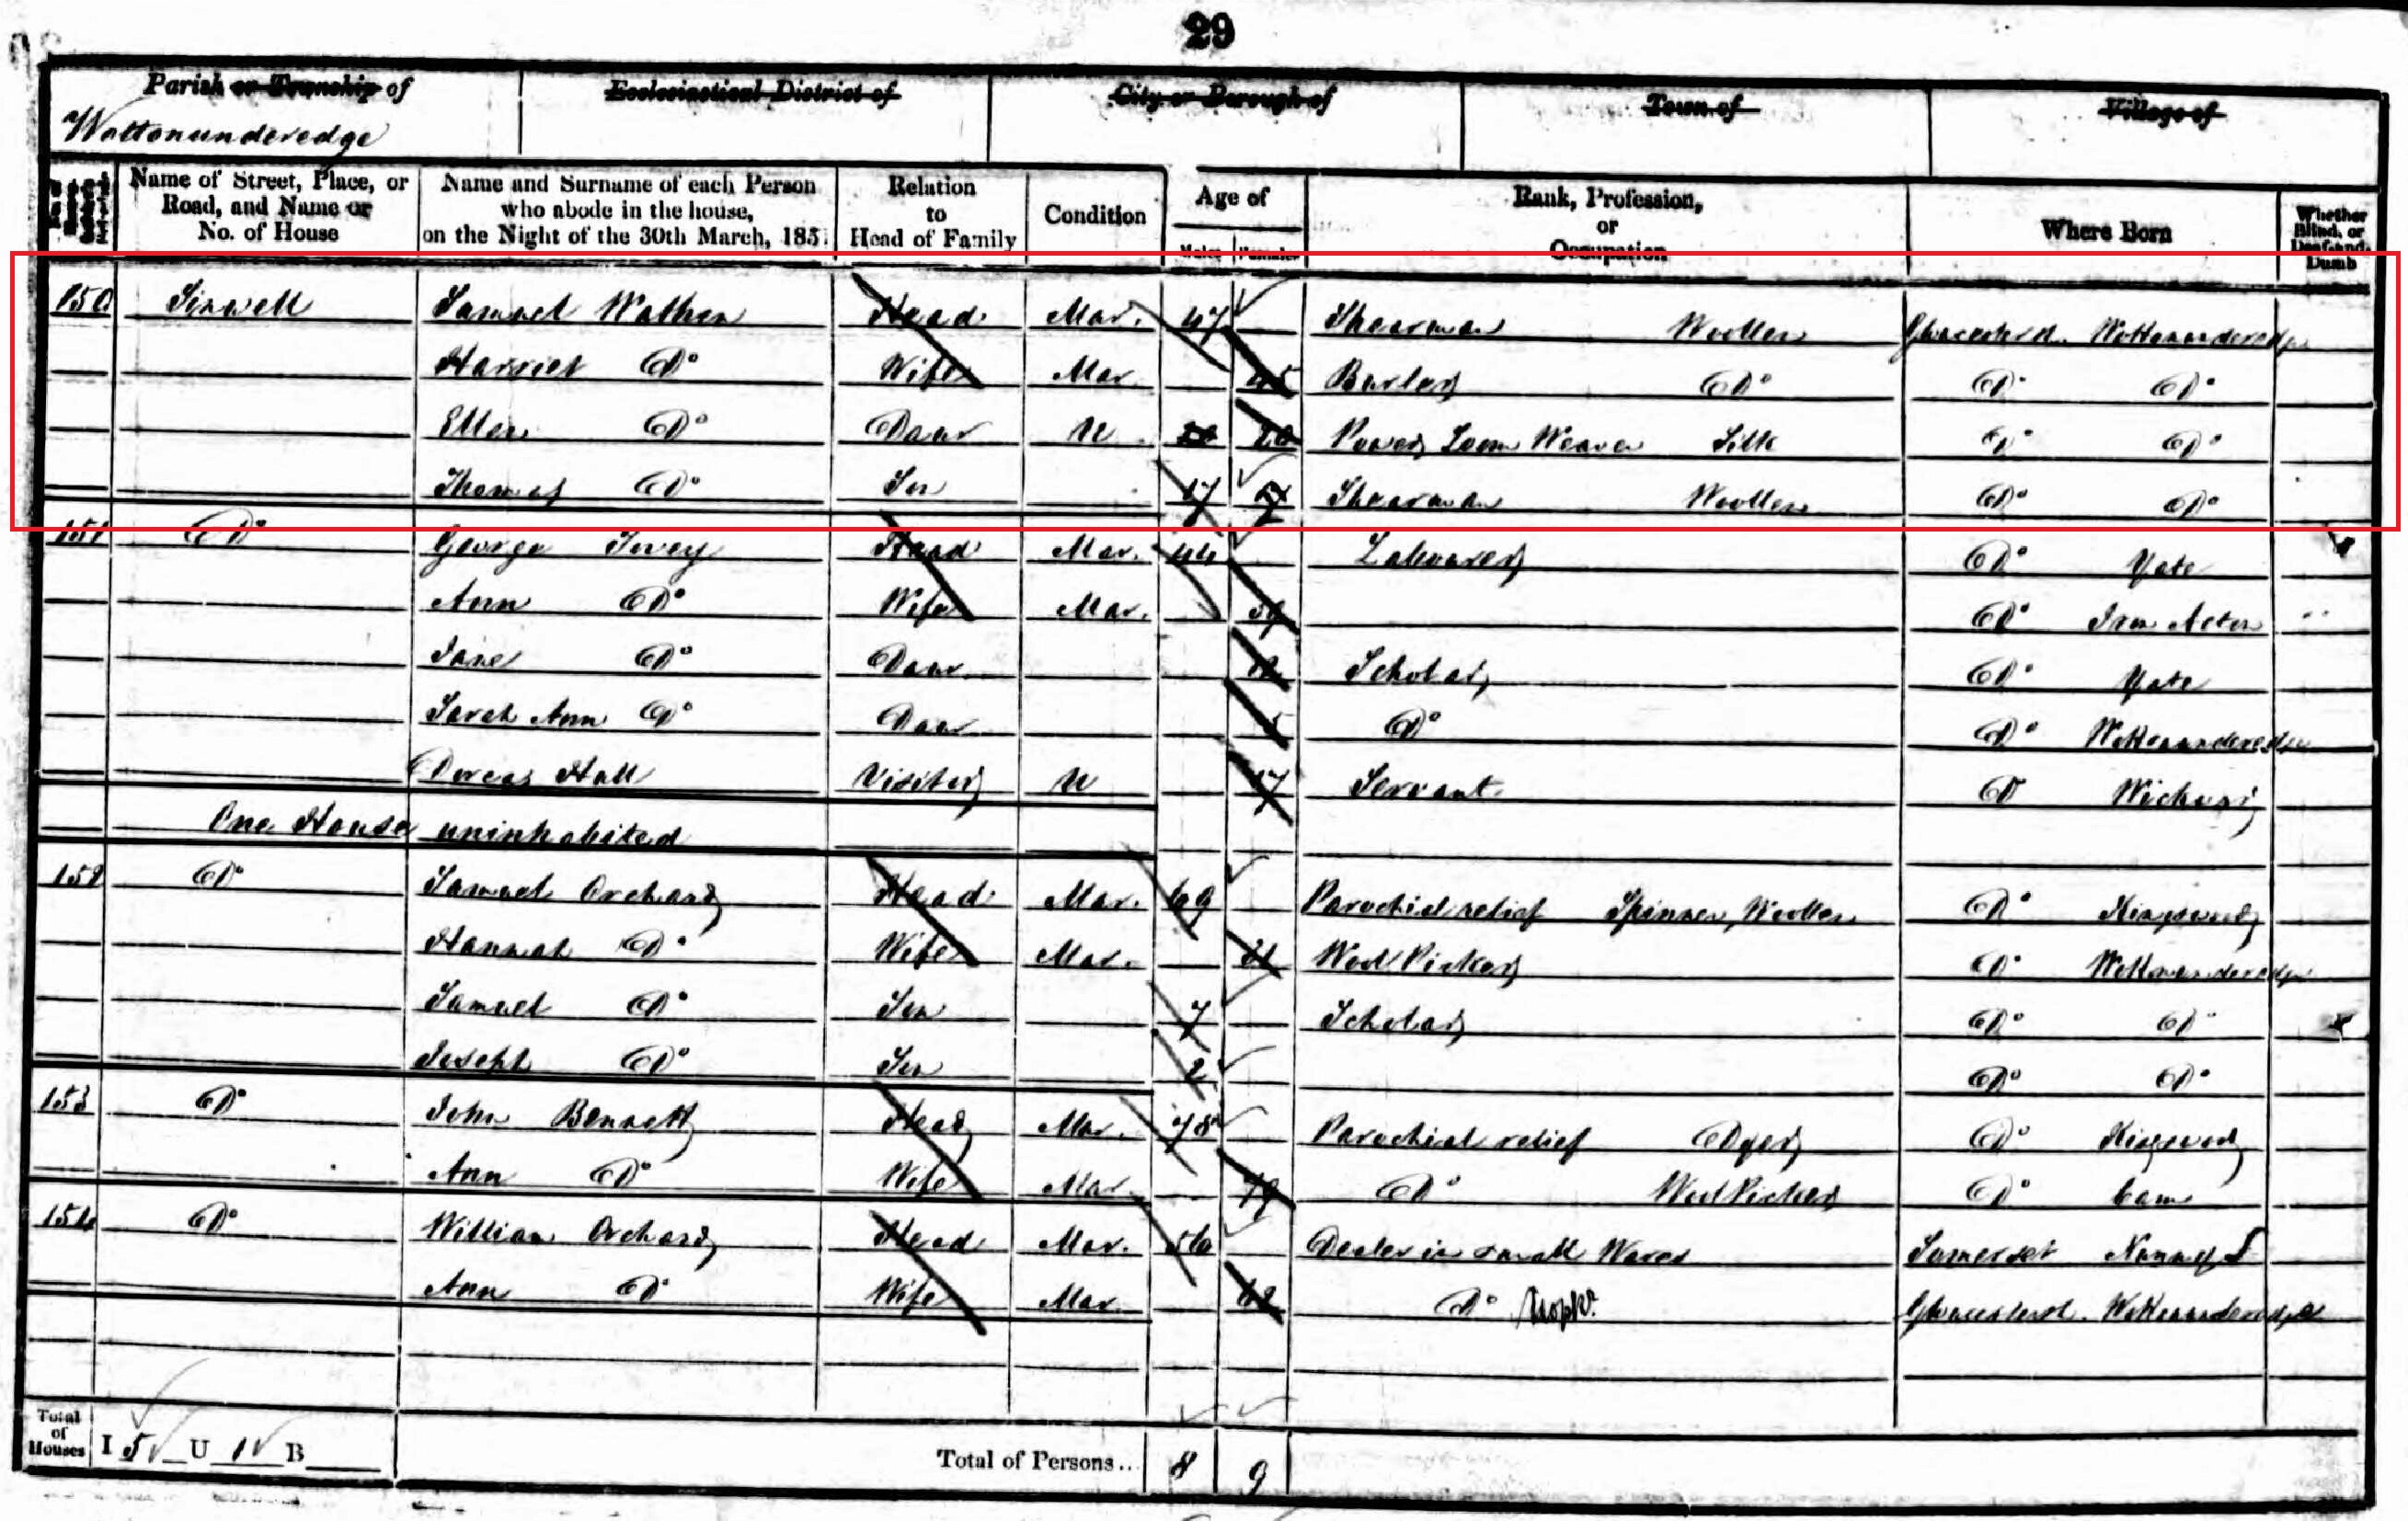 29
Parish or Township of Ecclesiastical District of City or Borough of Town of Village of
Wottonunderedge
Name of Street, Place, or Road, and Name or No. of House
Name and Surname of each Person who abode in the house, on the Night of the 30th March, 1851
Relation to Head of Family
Condition
Age of
Males Females
Rank, Profession, or Occupation
Where Born
Whether Blind, or Deaf and Dumb
150 Sinwell Samuel Wathen Head Mar. 47 Shearman Woollen Gloucestersh. Wottonunderedge
Harriet Do Wife Mar. 45 Burler Do Do Do
Ellen Do Daur U 20 Power Loom Weaver Silk Do Do
Thomas Do Son 17 Shearman Woollen Do Do
151 Do George Tovey Head Mar. 44 Labourer Do Yate
Ann Do Wife Mar. Do Iron Acton
Jane Do Daur Scholar Do Yate
Sarah Ann Do Daur 5 Do Do Wottonunderedge
Dorcas Hall Visitor U 17 Servant Do Wickwar
One House uninhabited
152 Do Samuel Orchard Head Mar. 69 Parochial relief Spinner, Woollen Do Kingswood
Hannah Do Wife Mar. Wool Picker Do Wottonunderedge
Samuel Do Son 7 Scholar Do Do
Joseph Do Son 2 Do Do
153 Do John Bennett Head Mar. 78 Parochial relief Dyer Do Kingswood
Ann Do Wife Mar. 79 Do Wool Picker Do Cam
154 Do William Orchard Head Mar. 56 Dealer in small Wares Somerset
Ann Do Wife Mar. 62 Do Gloucestersh. Wottonunderedge
Total of Houses I 5 U 1 B Total of Persons... 8 9